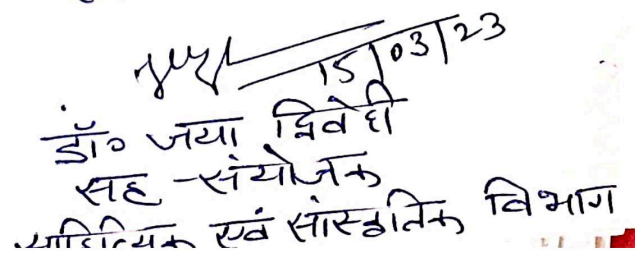 15/03/23
डॉ० जया द्विवेदी
सह-संयोजक
साहित्यिक एवं सांस्कृतिक विभाग